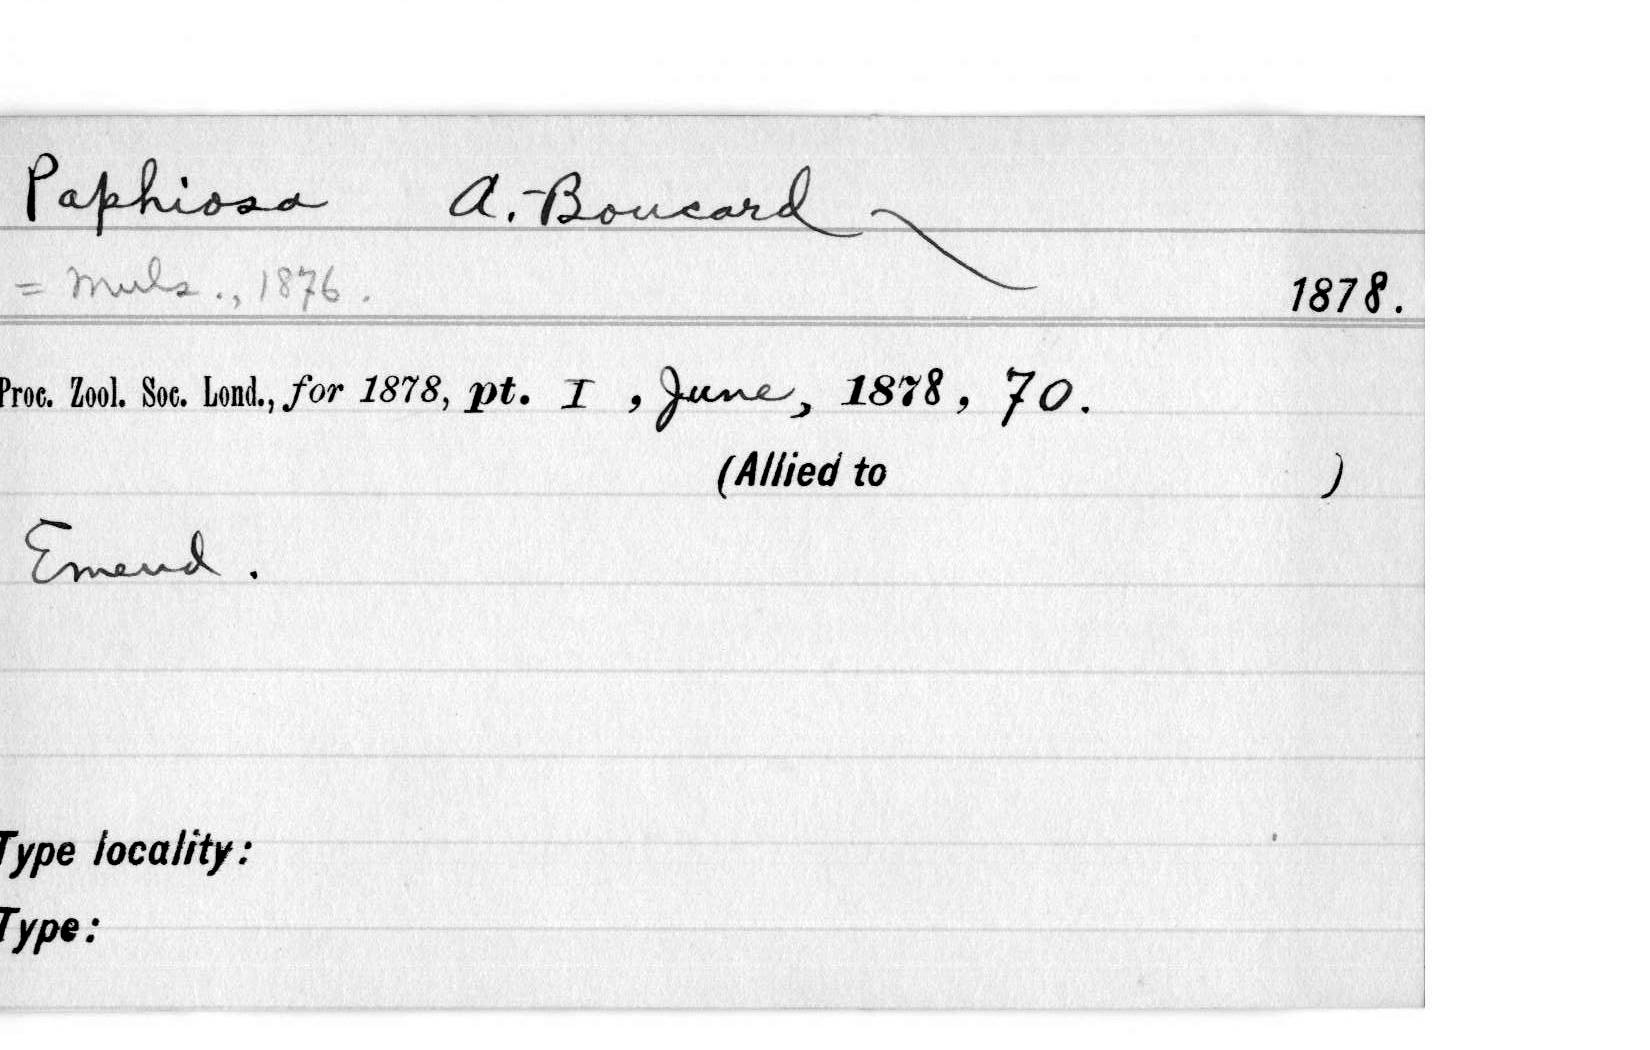 Paphiosa A. Boucard
= Muls., 1876. 1878.
Proc. Zool. Soc. Lond., for 1878, pt. I, June, 1878, 70.
(Allied to )
Emend.
Type locality:
Type: